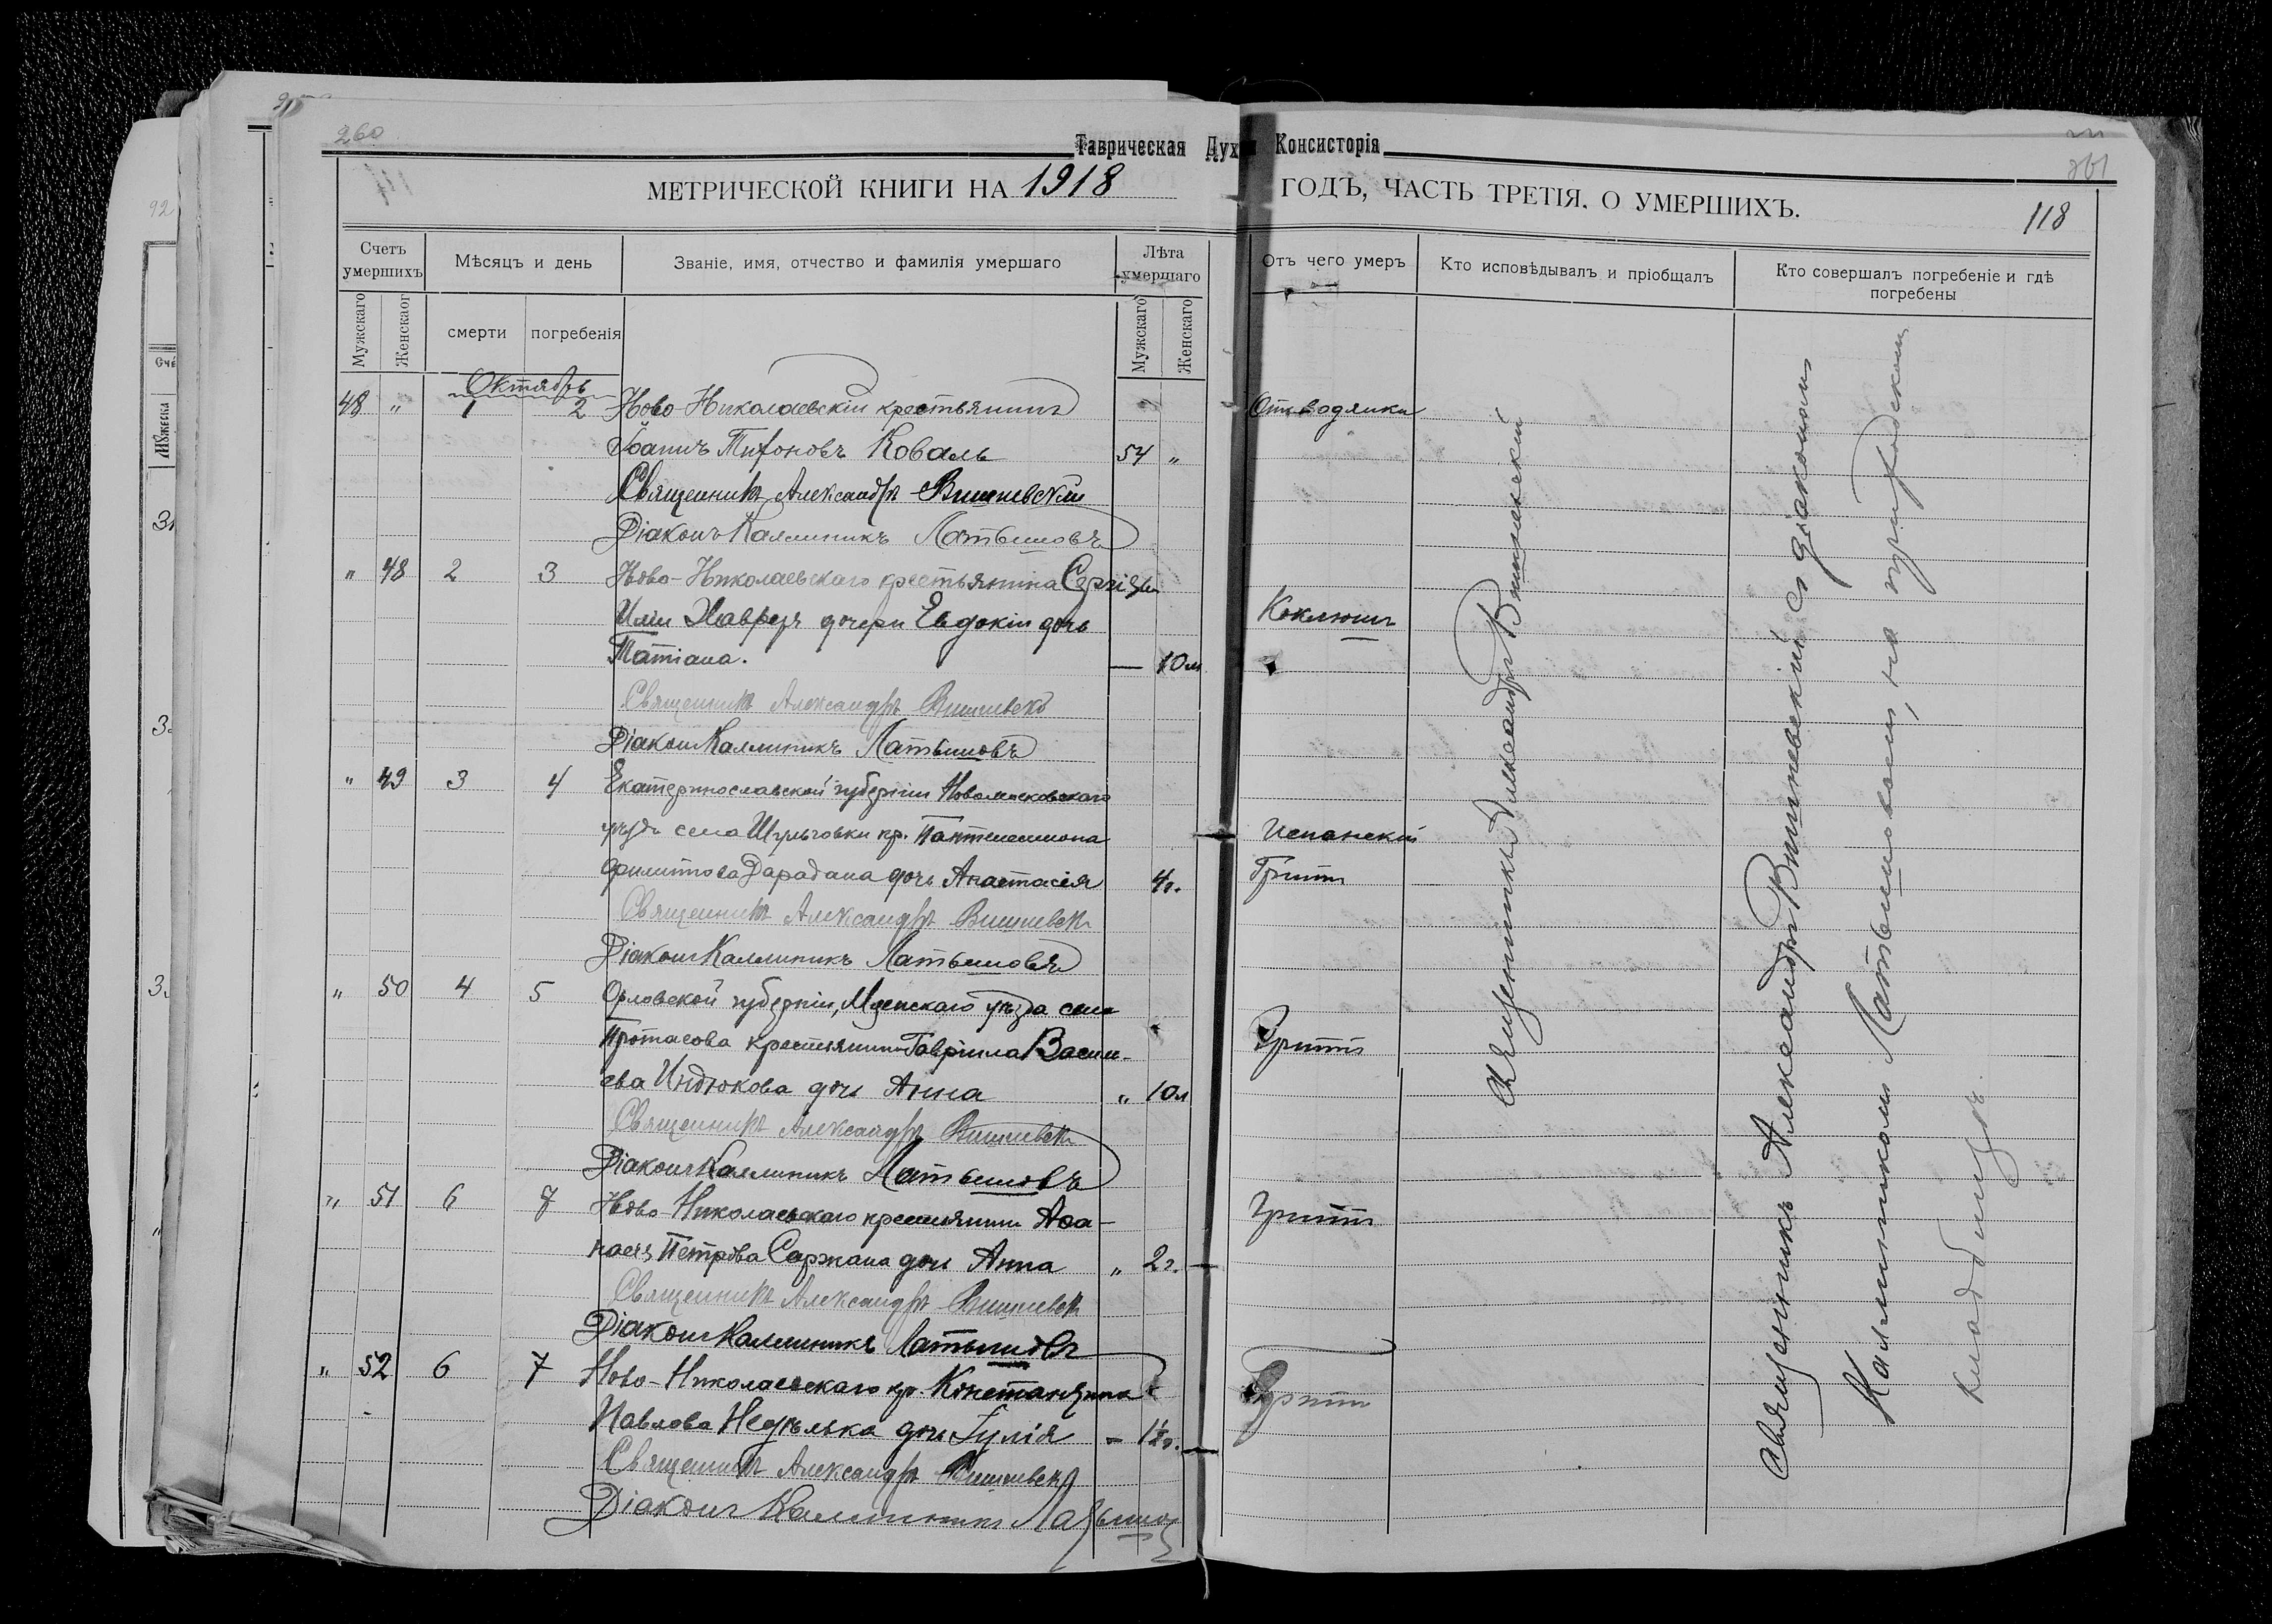 260
Таврическая Дух Консисторія
МЕТРИЧЕСКОЙ КНИГИ НА 1918
ГОДЪ, ЧАСТЬ ТРЕТІЯ, О УМЕРШИХЪ.
261
118
Счетъ умершихъ
Мѣсяцъ и день
Званіе, имя, отчество и фамилія умершаго
Лѣта умершаго
Отъ чего умеръ
Кто исповѣдывалъ и пріобщалъ
Кто совершалъ погребеніе и гдѣ погребены
Мужскаго
Женскаог
смерти
погребенія
Мужскаго
Женскаго
Октябрь
48 " 1 2 Ново-Николаевскій крестьянинъ Отъ водянки
Іоаннъ Тихоновъ Коваль 54 "
Священникъ Александръ Вишневскій
Діаконъ Каллиникъ Латышовъ
" 48 2 3 Ново-Николаевскаго крестьянина Сергія
дочери Евдокіи дочь Коклюшъ
Татіана. — 10 м
Священникъ Александръ Вишневск
Діаконъ Каллиникъ Латышовъ
" 49 3 4 Екатеринославской губерніи Новомосковскаго
уѣзда села Шульговки кр. Пантелеимона Испанскій
Филиппова Дарадана дочь Анастасія 4г. Гриппъ
Священникъ Александръ Вишневск
Діаконъ Каллиникъ Латышовъ
" 50 4 5 Орловской губерніи, Мценскаго уѣзда села
Протасова крестьянина Гавріила Васи- Гриппъ
ева Индюкова дочь Анна " 10 л
Священникъ Александръ Вишневск
Діаконъ Каллиникъ Латышовъ
" 51 6 7 Ново-Николаевскаго крестьянина Аѳа- Гриппъ
насія Петрова Саржана дочь Анна " 2г.
Священникъ Александръ Вишневск
Діаконъ Каллиникъ Латышовъ
" 52 6 7 Ново-Николаевскаго кр. Константина Гриппъ
Павлова Недѣлька дочь Іулія – 1½г.
Священникъ Александръ Вишневск
Діаконъ Каллиникъ Латышов
Священникъ Александръ Вишневскій
Священникъ Александръ Вишневскій съ діакономъ
Каллиникомъ Латышовымъ, на приходскомъ
кладбищѣ.